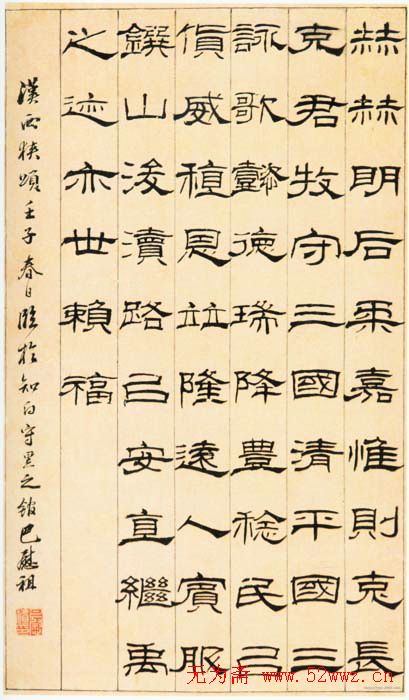 赫赫明后柔嘉惟則克長
克君牧守三國清平國三
詠歌懿德瑞降豊稔民㠯
貨威稙恩竝隆遠人賓服
鐉山浚瀆路㠯安直繼禹
之迹亦世賴福
漢西狹頌壬子春日臨於知白守黑之館巴慰祖
无为斋 www.52wwz.cn